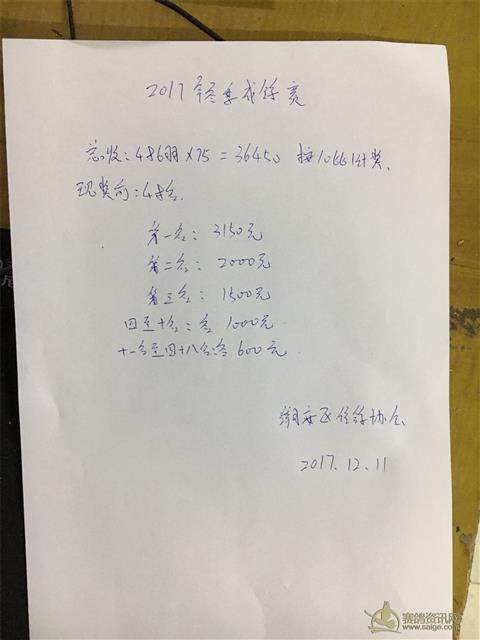 2017年冬季成鸽赛
总收:486羽×75=36450 按10比1计奖.
现奖前:48名.
第一名: 3150元
第二名: 2000元
第三名: 1500元
四至十名:各 1000元
十一名至四十八名:各 600元
翔安区信鸽协会
2017.12.11
赛鸽资讯网
www.saige.com